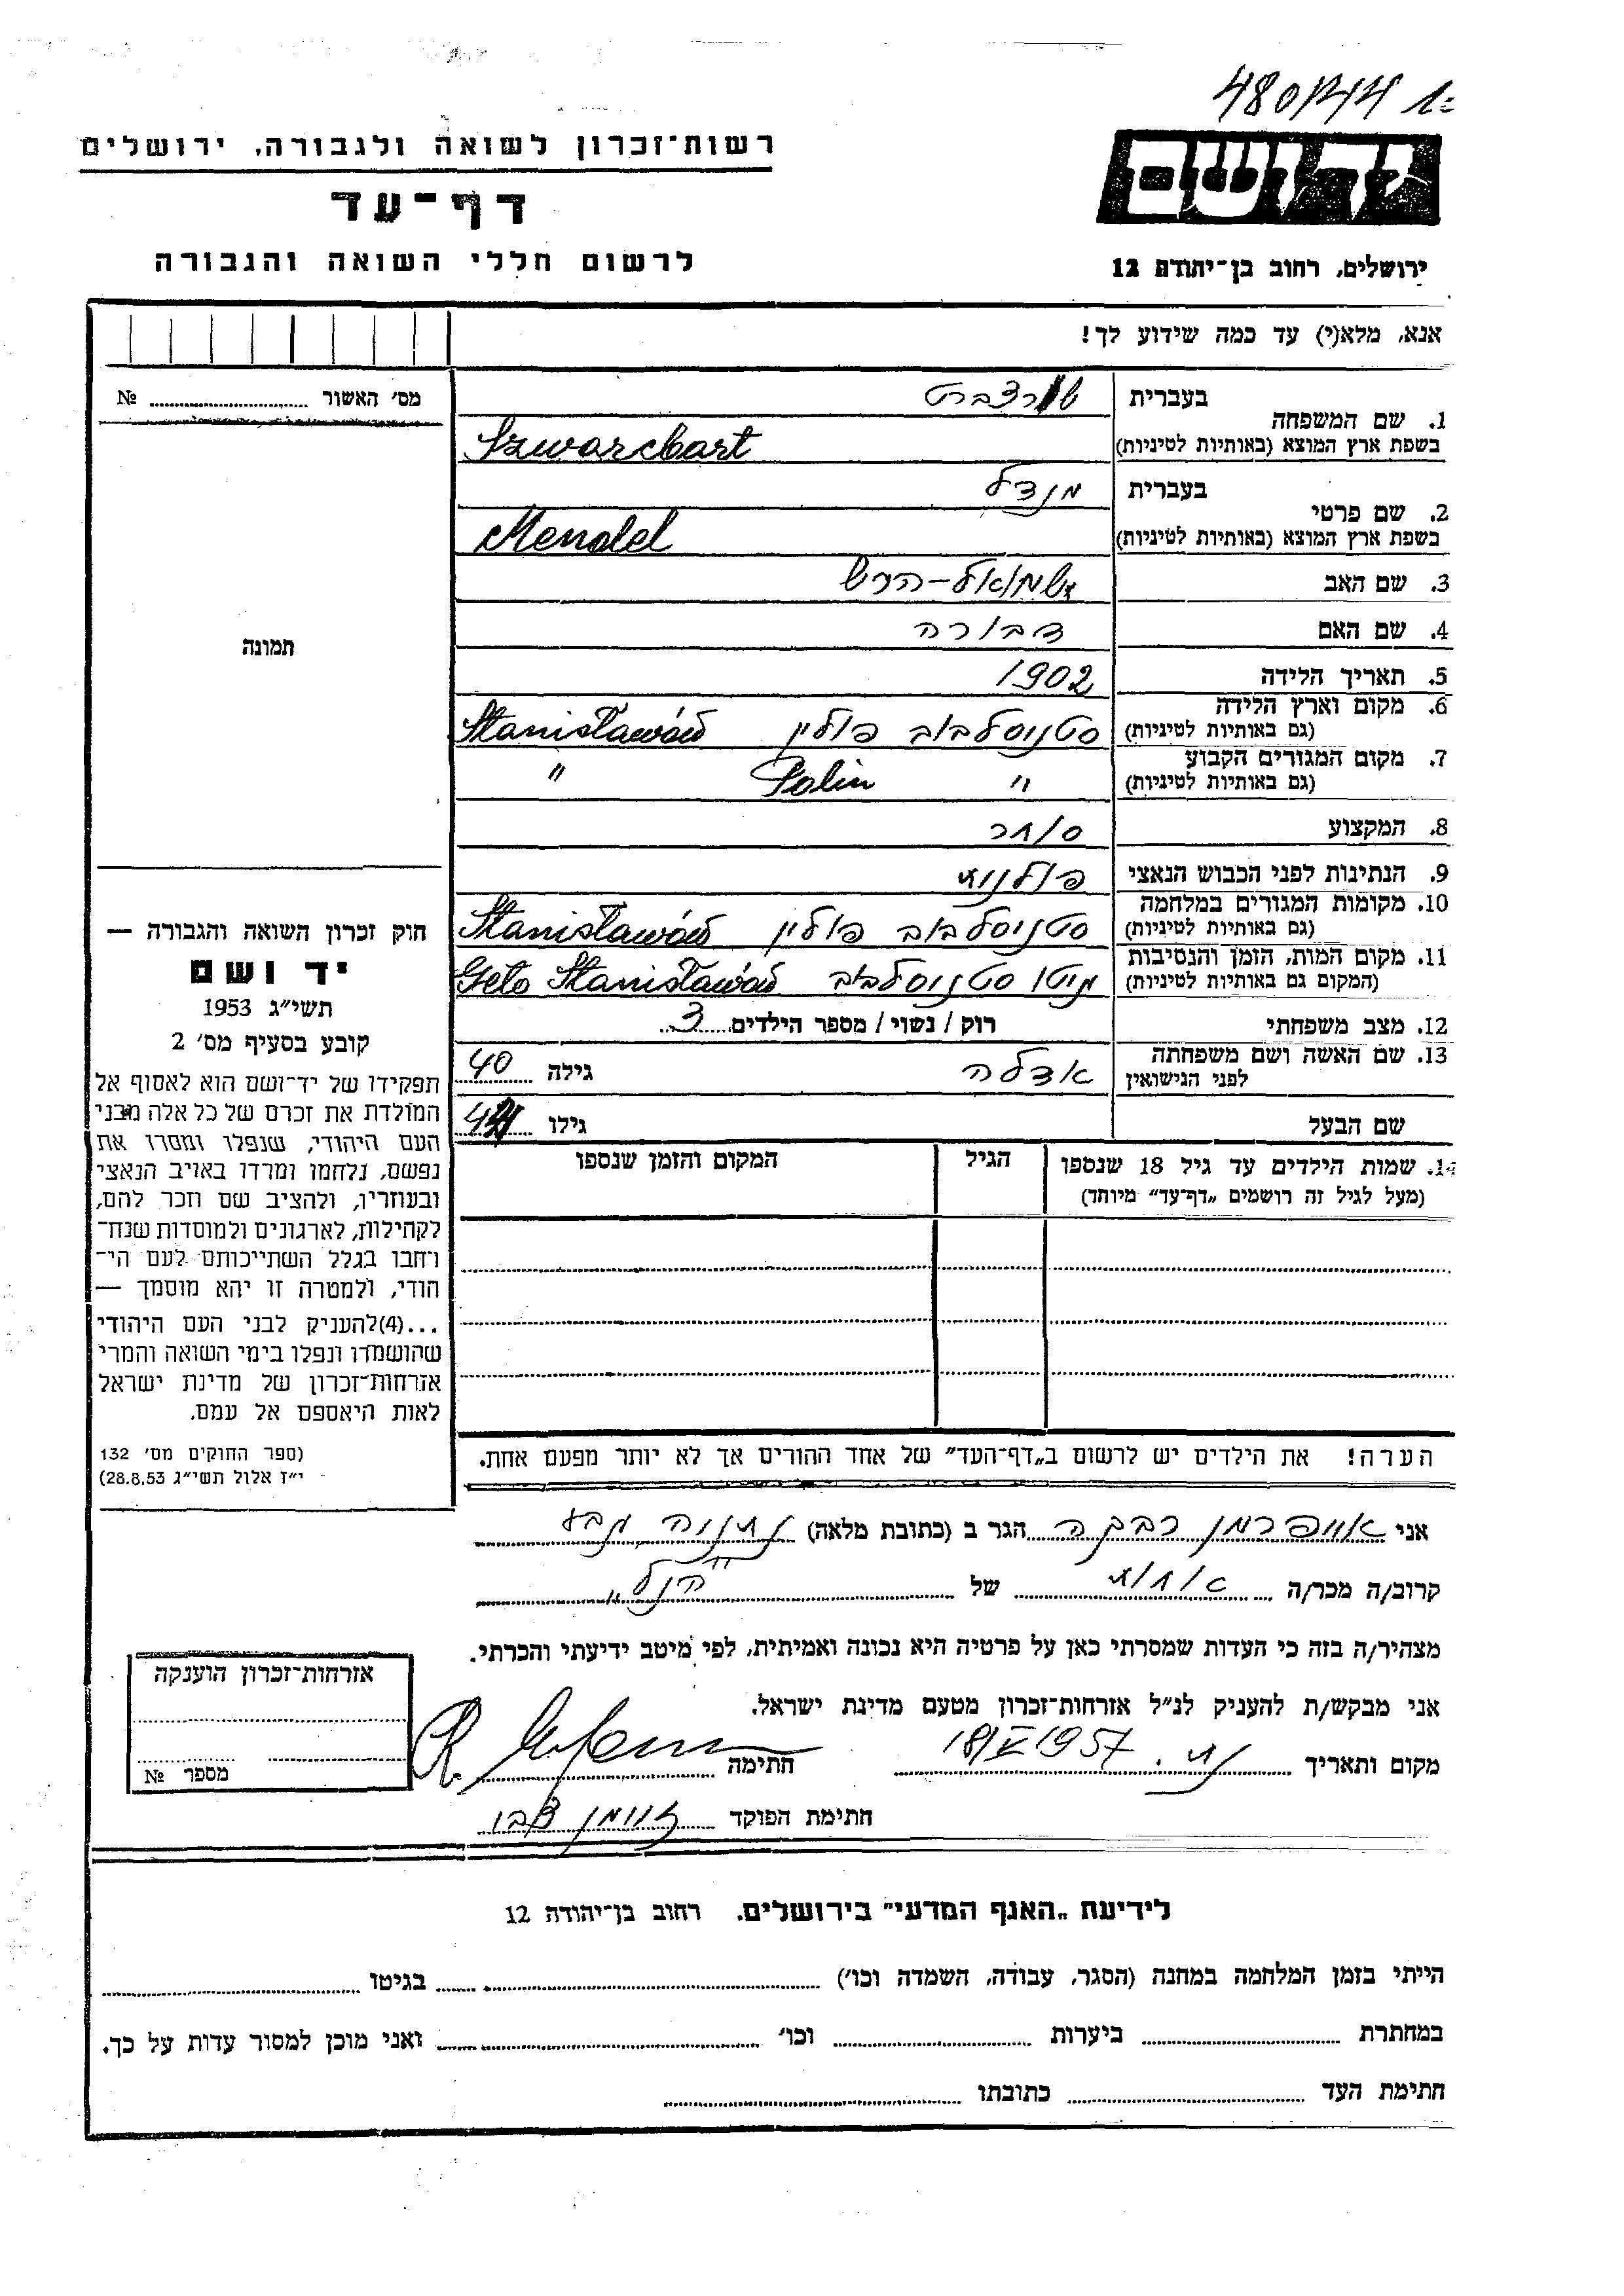 רשות־זכרון לשואה ולגבורה, ירושלים
יד ושם
דף־עד
לרשום חללי השואה והגבורה
ירושלים, רחוב בן־יהודה 12
אנא, מלא(י) עד כמה שידוע לך!
מס׳ האשור № 
1. שם המשפחה
בעברית
בשפת ארץ המוצא (באותיות לטיניות) Szwarcbart
2. שם פרטי
בעברית מנדל
בשפת ארץ המוצא (באותיות לטיניות) Mendel
3. שם האב שמואל-הרש
4. שם האם דבורה
5. תאריך הלידה 1902
6. מקום וארץ הלידה סטניסלבוב פולין Stanisławów
(גם באותיות לטיניות)
7. מקום המגורים הקבוע " Polin "
(גם באותיות לטיניות)
8. המקצוע סוחר
9. הנתינות לפני הכבוש הנאצי פולנית
10. מקומות המגורים במלחמה סטניסלבוב פולין Stanisławów
(גם באותיות לטיניות)
11. מקום המות, הזמן והנסיבות גיטו סטניסלבוב Geto Stanisławów
(המקום גם באותיות לטיניות)
12. מצב משפחתי רוק / נשוי / מספר הילדים 3
13. שם האשה ושם משפחתה אדלה גילה 40
לפני הנישואין
שם הבעל גילו
14. שמות הילדים עד גיל 18 שנספו הגיל המקום והזמן שנספו
(מעל לגיל זה רושמים „דף־עד״ מיוחד)
הערה! את הילדים יש לרשום ב„דף־העד״ של אחד ההורים אך לא יותר מפעם אחת.
תמונה
חוק זכרון השואה והגבורה —
יד ושם
תשי״ג 1953
קובע בסעיף מס׳ 2
תפקידו של יד־ושם הוא לאסוף אל
המולדת את זכרם של כל אלה מבני
העם היהודי, שנפלו ומסרו את
נפשם, נלחמו ומרדו באויב הנאצי
ובעוזריו, ולהציב שם וזכר להם,
לקהילות, לארגונים ולמוסדות שנח־
רבו בגלל השתייכותם לעם הי־
הודי, ולמטרה זו יהא מוסמך —
...(4)להעניק לבני העם היהודי
שהושמדו ונפלו בימי השואה והמרי
אזרחות־זכרון של מדינת ישראל
לאות היאספם אל עמם.
(ספר החוקים מס׳ 132
י״ז אלול תשי״ג 28.8.53)
אני רבקה הגר ב (כתובת מלאה) נתניה
קרוב/ה מכר/ה אחות של הנ"ל
מצהיר/ה בזה כי העדות שמסרתי כאן על פרטיה היא נכונה ואמיתית, לפי מיטב ידיעתי והכרתי.
אני מבקש/ת להעניק לנ״ל אזרחות־זכרון מטעם מדינת ישראל.
מקום ותאריך 1957 חתימה
חתימת הפוקד
אזרחות־זכרון הוענקה
מספר №
לידיעת „האגף המדעי״ בירושלים. רחוב בן־יהודה 12
הייתי בזמן המלחמה במחנה (הסגר, עבודה, השמדה וכו׳) בגיטו
במחתרת ביערות וכו׳ ואני מוכן למסור עדות על כך.
חתימת העד כתובתו